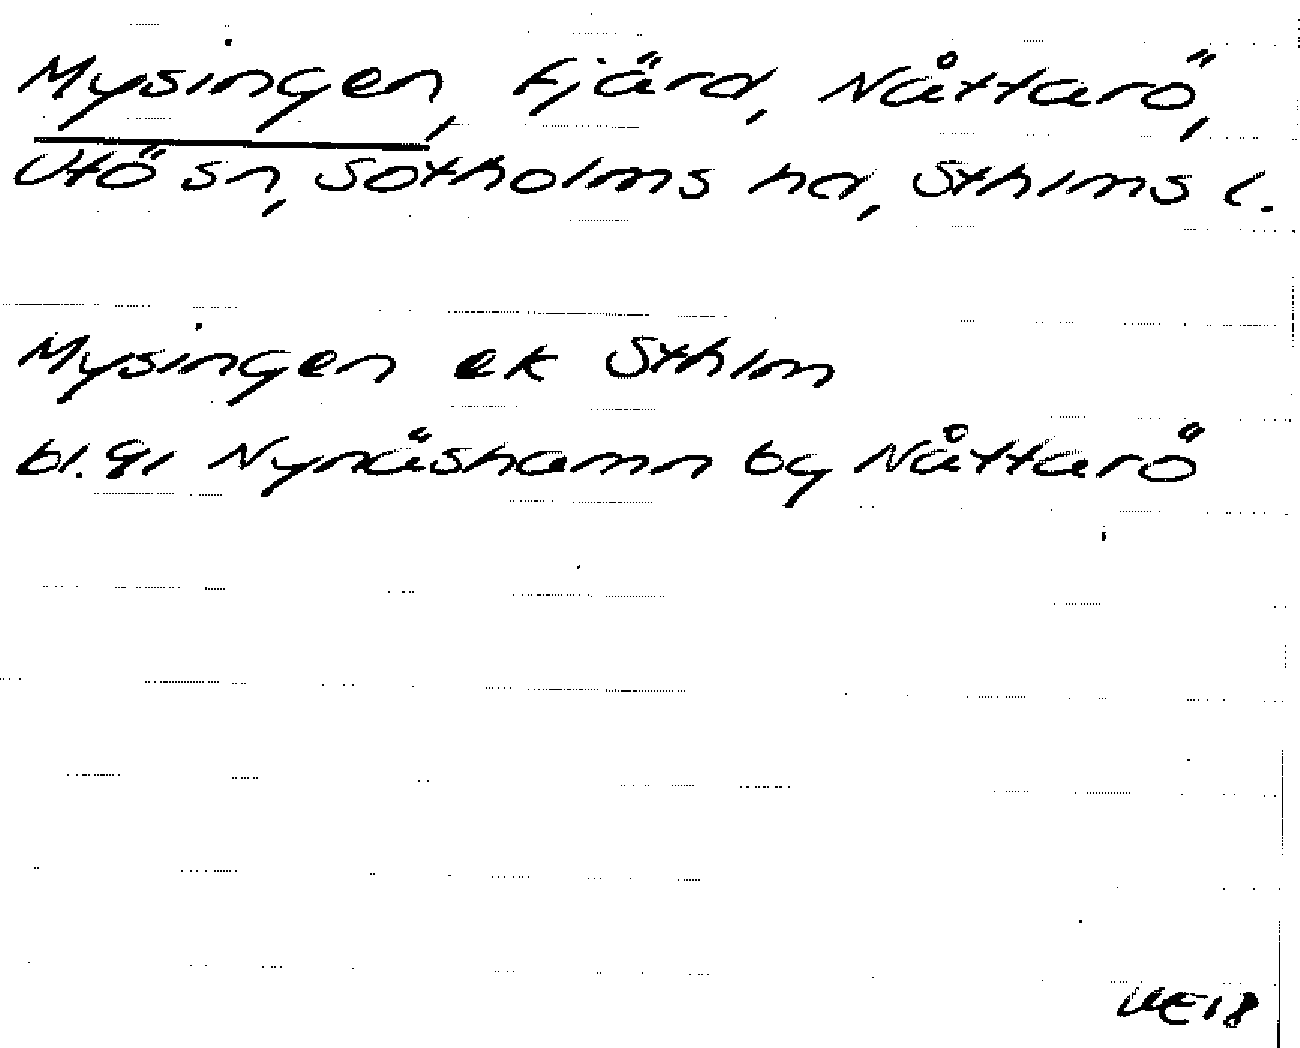 Mysingen, Fjärd, Nåttarö,
Utö sn, Sotholms hd, Sthlms l.
Mysingen ek Sthlm
bl. 91 Nynäshamn by Nåttarö